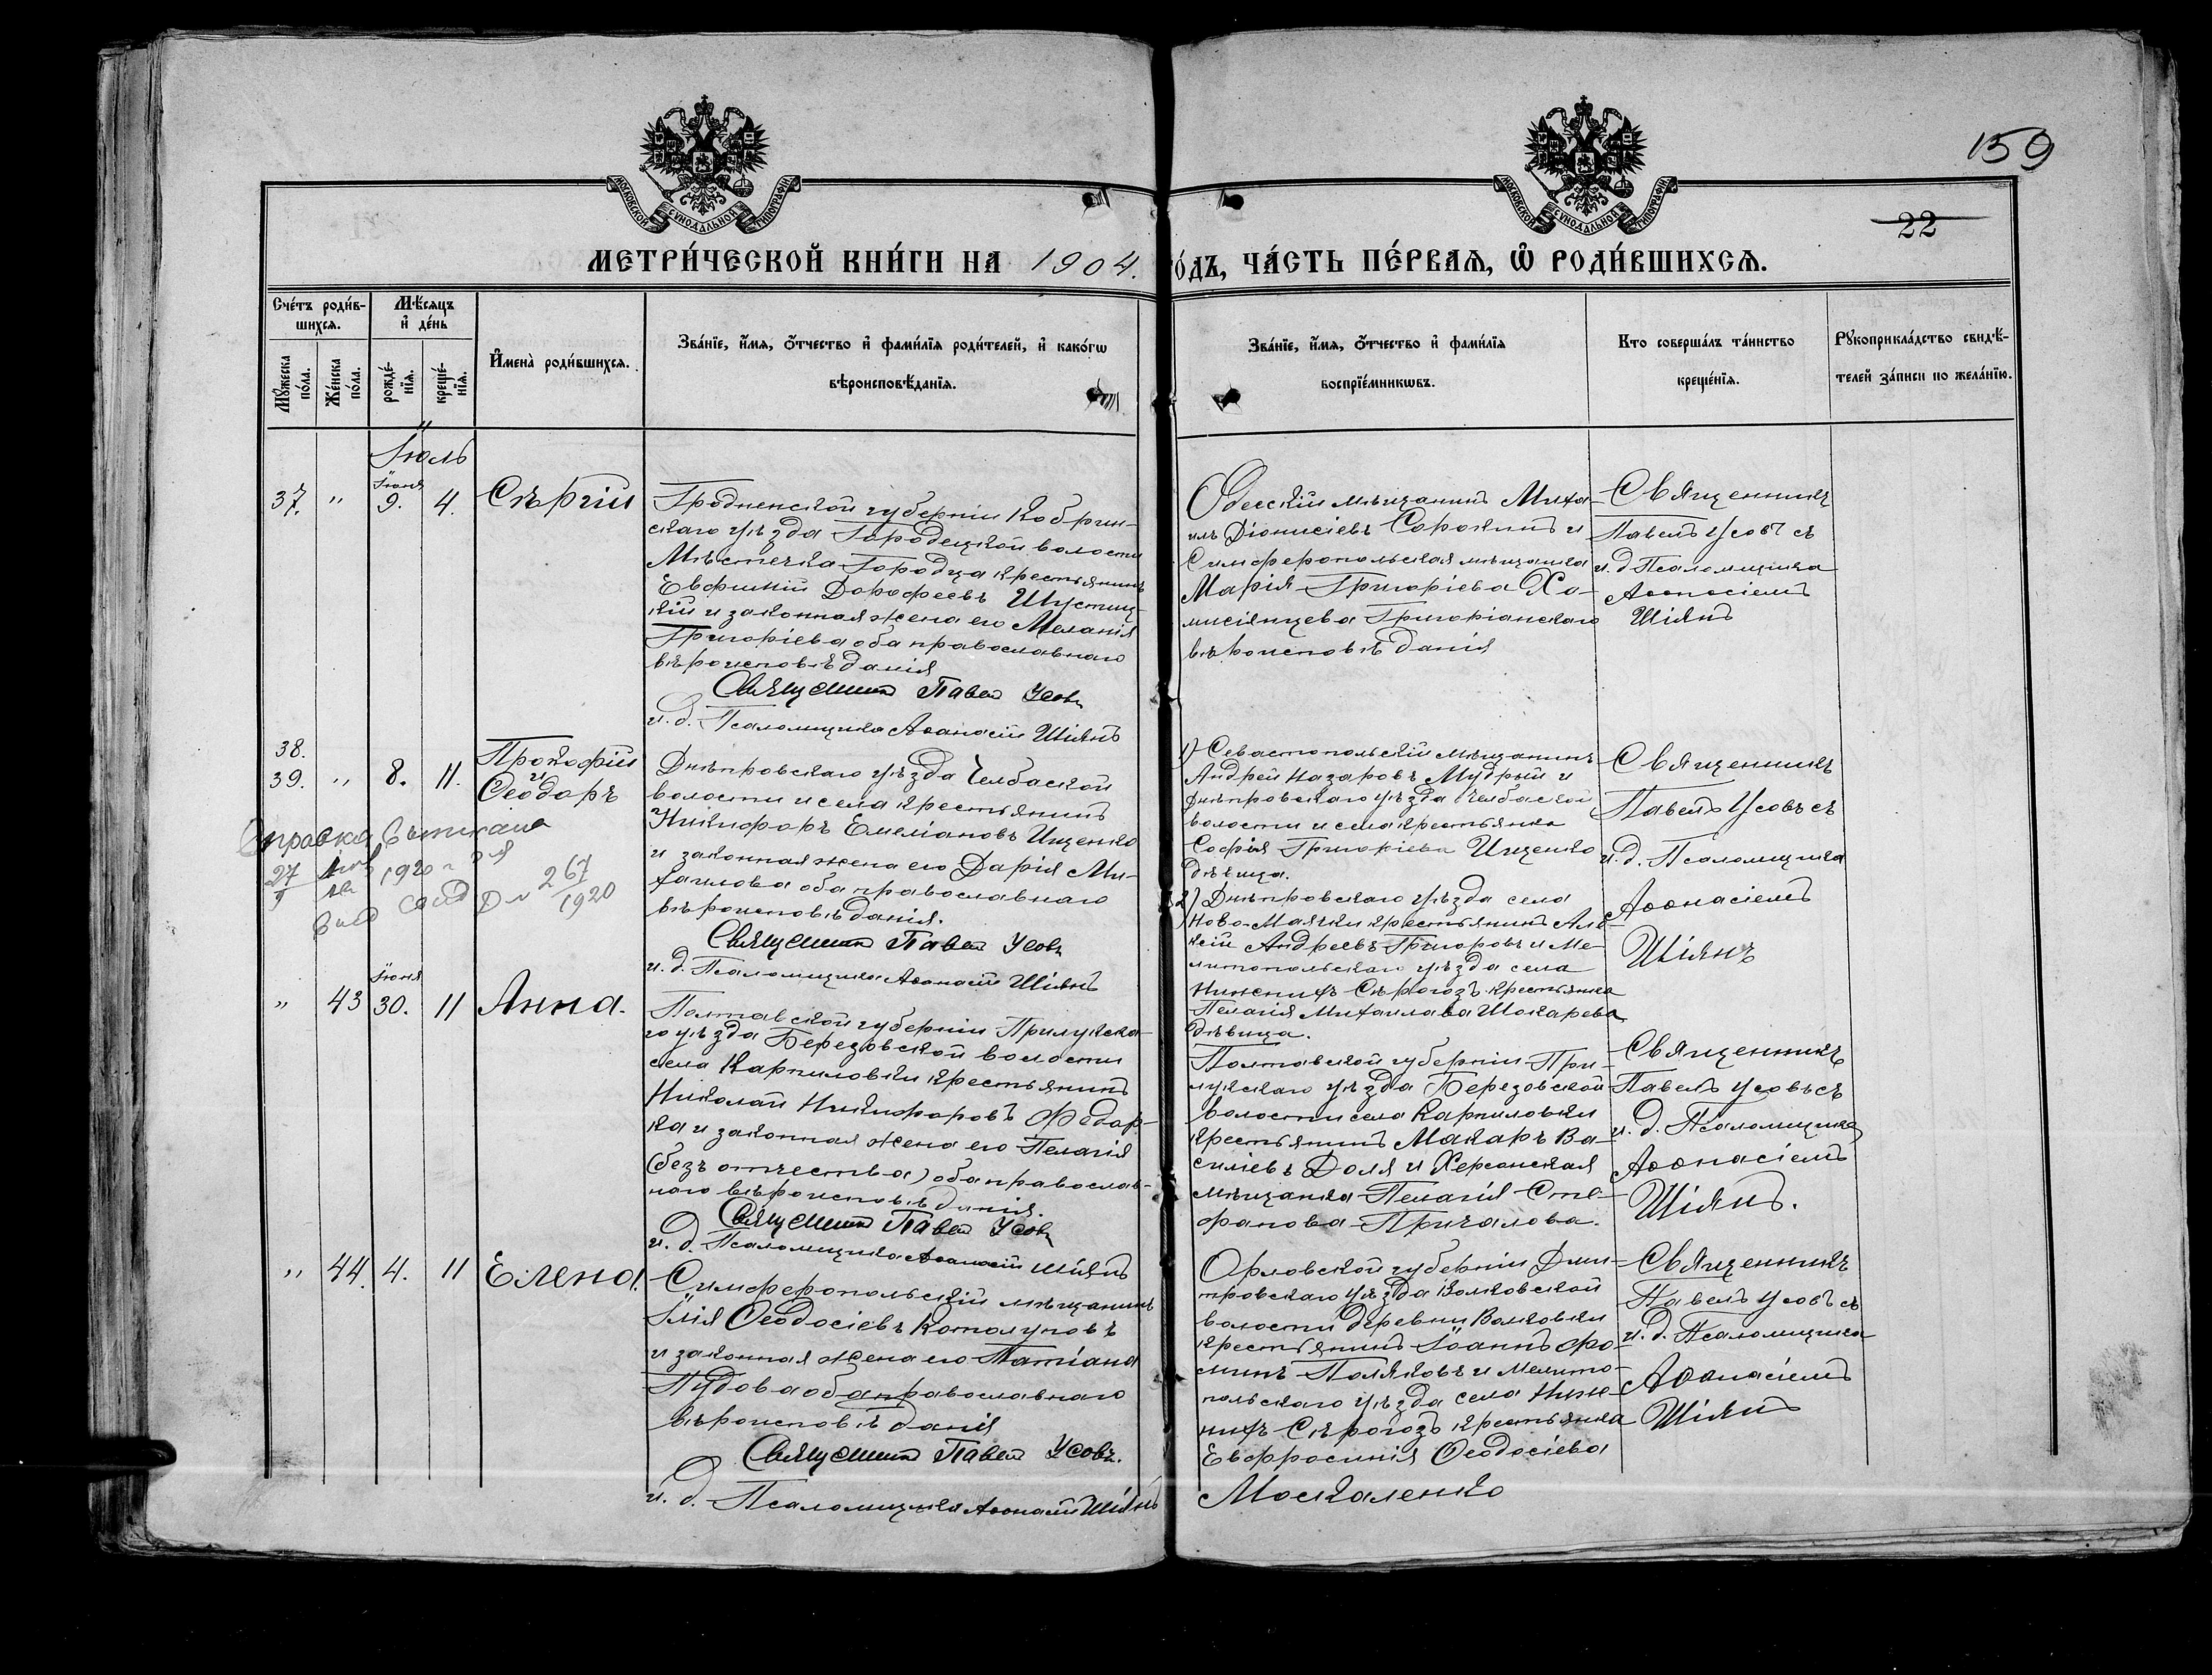 159
22
МОСКОВСКОЙ СѴНОДАЛЬНОЙ ТИПОГРАФІИ
МОСКОВСКОЙ СѴНОДАЛЬНОЙ ТИПОГРАФІИ
МЕТРИ́ЧЕСКОЙ КНИ́ГИ НА 1904. ГО́ДЪ, ЧА́СТЬ ПЕ́РВАЯ, Ѡ РОДИ́ВШИХСЯ.
Сче́тъ роди́в-
шихся.
Мѣ́сяцъ
и де́нь
Му́жеска по́ла.
Же́нска по́ла.
рожде́-
нїя.
креще́-
нїя.
Имена̀ роди́вшихся.
Зва́нїе, и́мя, о́тчество и фами́лїя роди́телей, и како́гѡ
вѣроисповѣ́данїя.
Зва́нїе, и́мя, о́тчество и фами́лїя
воспрїе́мникѡвъ.
Кто соверша́лъ та́инство
креще́нїя.
Рукоприкла́дство свидѣ́-
телей за́писи по жела́нїю.
Іюль
37. " Іюня 9. 4. Сергій
Гродненской губерніи Кобрин-
скаго уѣзда Городецкой волости
Мѣстечка Городца крестьянинъ
Евфимій Дорофеевъ Шустиц-
кій и законная жена его Меланія
Григоріева оба православнаго
вѣроисповѣданія
Священникъ Павелъ Усовъ
и. д. Псаломщика Аѳанасій Шіянъ
Одесскій мѣщанинъ Миха-
илъ Діонисіевъ Сорокинъ и
Симферопольская мѣщанка
Марія Григоріева Ха-
мисіянцева Григоріанскаго
вѣроисповѣданія
Священникъ
Павелъ Усовъ съ
и. д. Псаломщика
Аѳонасіемъ
Шіянъ
38.
39. " 8. 11. Прокофій
и
Ѳеодоръ
Днѣпровскаго уѣзда Челбаской
волости и села крестьянинъ
Никифоръ Емеліановъ Ищенко
и законная жена его Дарія Ми-
хаилова оба православнаго
вѣроисповѣданія.
Священникъ Павелъ Усовъ
и. д. Псаломщика Аѳанасій Шіянъ
1) Севастопольскій мѣщанинъ
Андрей Назаровъ Мудрый и
Днѣпровскаго уѣзда Челбаской
волости и села крестьянка
Софія Григоріева Ищенко
дѣвица.
2) Днѣпровскаго уѣзда села
Ново-Маячки крестьянинъ Але-
ксій Андреевъ Григоровъ и Ме-
литопольскаго уѣзда села
Нижнихъ Сѣрогозъ крестьянка
Пелагія Михаилова Шокарева
дѣвица.
Священникъ
Павелъ Усовъ съ
и. д. Псаломщика
Аѳонасіемъ
Шіянъ
Справка
27 1920 г для
267
1920
" 43 Іюня 30. 11 Анна.
Полтавской губерніи Прилукска-
го уѣзда Березовской волости
села Карпиловки крестьянинъ
Николай Никифоровъ Федор-
ка и законная жена его Пелагія
(безъ отчества) оба православ-
наго вѣроисповѣданія.
Священникъ Павелъ Усовъ
и. д. Псаломщика Аѳанасій Шіянъ
Полтавской губерніи При-
лукскаго уѣзда Березовской
волости села Карпиловки
крестьянинъ Макаръ Ва-
силіевъ Доля и Херсонская
мѣщанка Пелагія Сте-
фанова Причалова.
Священникъ
Павелъ Усовъ съ
и. д. Псаломщика
Аѳонасіемъ
Шіянъ.
" 44. 4. 11 Елена.
Симферопольскій мѣщанинъ
Илія Ѳеодосіевъ Котолуповъ
и законная жена его Татіана
Пудова оба православнаго
вѣроисповѣданія
Священникъ Павелъ Усовъ.
и. д. Псаломщика Аѳонасій Шіянъ
Орловской губерніи Дми-
тровскаго уѣзда Волковской
волости деревни Волковки
крестьянинъ Іоаннъ Фо-
минъ Поляковъ и Мелито-
польскаго уѣзда села Ниж-
нихъ Сѣрогозъ крестьянка
Евфросинія Ѳеодосіева
Москаленко
Священникъ
Павелъ Усовъ съ
и. д. Псаломщика
Аѳонасіемъ
Шіянъ